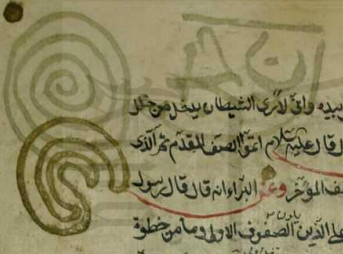 بيده وانى لارى الشيطان يدخل من خلل
قال عليه السلام اتموا الصف المقدم ثم الذى
المؤخر وعن البراء انه قال قال رسول
على الذين يلون الصفوف الاولى وما من خطوة